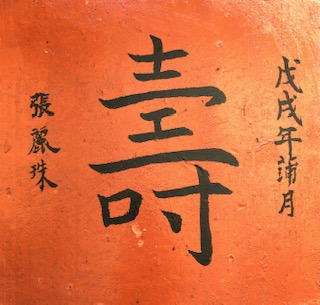 戊戌年蒲月
壽
張麗珠